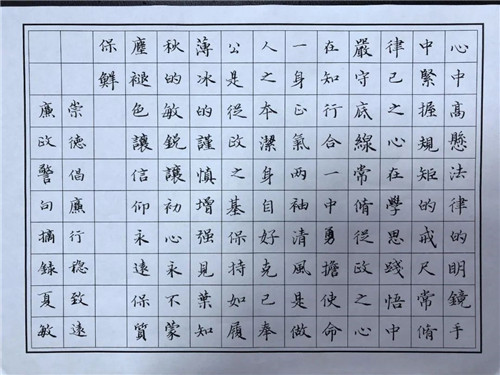 心中高懸法律的明鏡手
中緊握規矩的戒尺常脩
律己之心在學思踐悟中
嚴守底線常脩從政之心
在知行合一中勇擔使命
一身正氣两袖清風是做
人之本潔身自好克己奉
公是從政之基保持如履
薄冰的謹慎增强見葉知
秋的敏銳讓初心永不蒙
塵褪色讓信仰永遠保質
保鮮
崇德倡廉行穩致遠
廉政警句摘錄夏敏